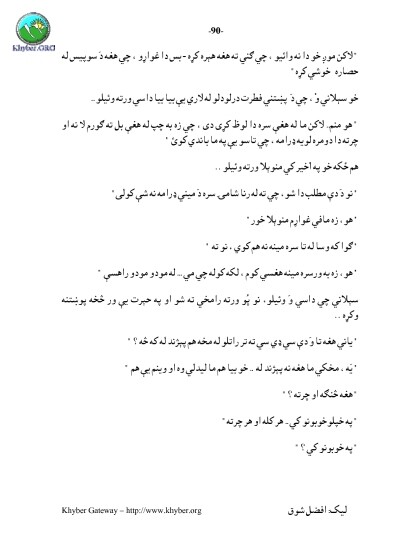 -90-
Khyber.ORG
"لاکن موږ خو دا نه وائيو ، چي ګني ته هغه هېره کړه - بس دا غواړو ، چي هغه دَ سوپيس له
حصاره خوشي کړه "
خو سبلاني وُ ، چي دَ پښتني فطرت در لودلو له لاري يې بيا بيا داسي ورته وئيلو..
"هو منم. لاکن ما له هغې سره دا لوظ کړی دی ، چي زه به چپ له هغې بل ته ګورم لا نه او
چرته دا دومره لويه ډرامه ، چي تاسو يې په ما باندي کوئ "
هم ځکه خو په اخير کي منوېلا ورته وئيلو . .
"نو دَ دې مطلب دا شو ، چي ته له رنا شامۍ سره دَ ميني ډرامه نه شې کولی"
"هو ، زه مافي غواړم منوېلا خور"
"ګوا که وسا له تا سره مينه نه هم کوي ، نو ته "
"هو ، زه به ورسره مينه هغسي کوم ، لکه کوله چي مي... له مودو مودو راهسي "
سبلاني چي داسي وَ وئيلو، نو پُو ورته رامخي ته شو او په حيرت يې ور څخه پوښتنه
وکړه . .
"ياني هغه تا وَ دې سي ډي سي ته تر راتلو له مخه هم پېژند له که څه ؟ "
"يَه ، مخکي ما هغه نه پېژند له .. خو بيا هم ما ليدلې وه او وينم يې هم "
"هغه څنګه او چرته ؟ "
"په خپلو خوبونو کي - هر کله او هر چرته"
"په خوبونو کي ؟ "
ليک: افضل شوق
Khyber Gateway – http://www.khyber.org